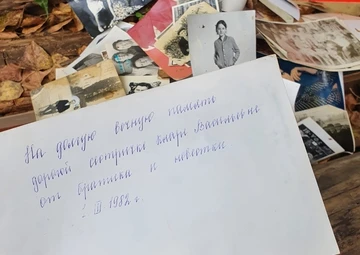 На долгую вечную память
дорогой сестрички Клары Васильевне
от братика и невестки
2 III 1982 г.